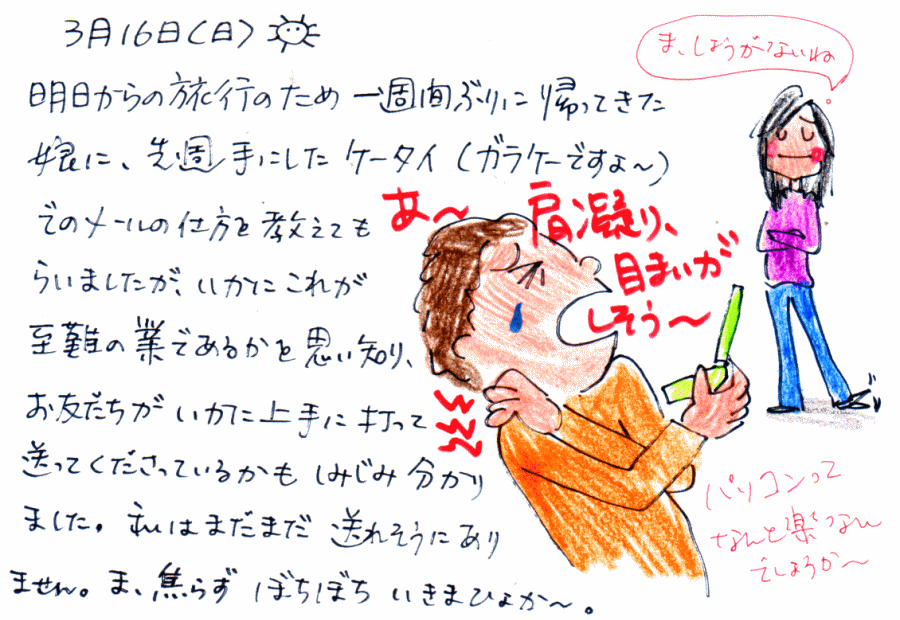 3月16日(日)
明日からの旅行のため一週間ぶりに帰ってきた
娘に、先週手にしたケータイ(ガラケーですよ〜)
でのメールの仕方を教えても
らいましたが、いかにこれが
至難の業であるかを思い知り、
お友だちがいかに上手に打って
送ってくださっているかもしみじみ分かり
ました。私はまだまだ送れそうにあり
ません。ま、焦らずぼちぼちいきまひょか〜。
あ〜肩凝り、
目まいが
しそう〜
ま、しょうがないね
パソコンって
なんと楽なん
でしょうか〜